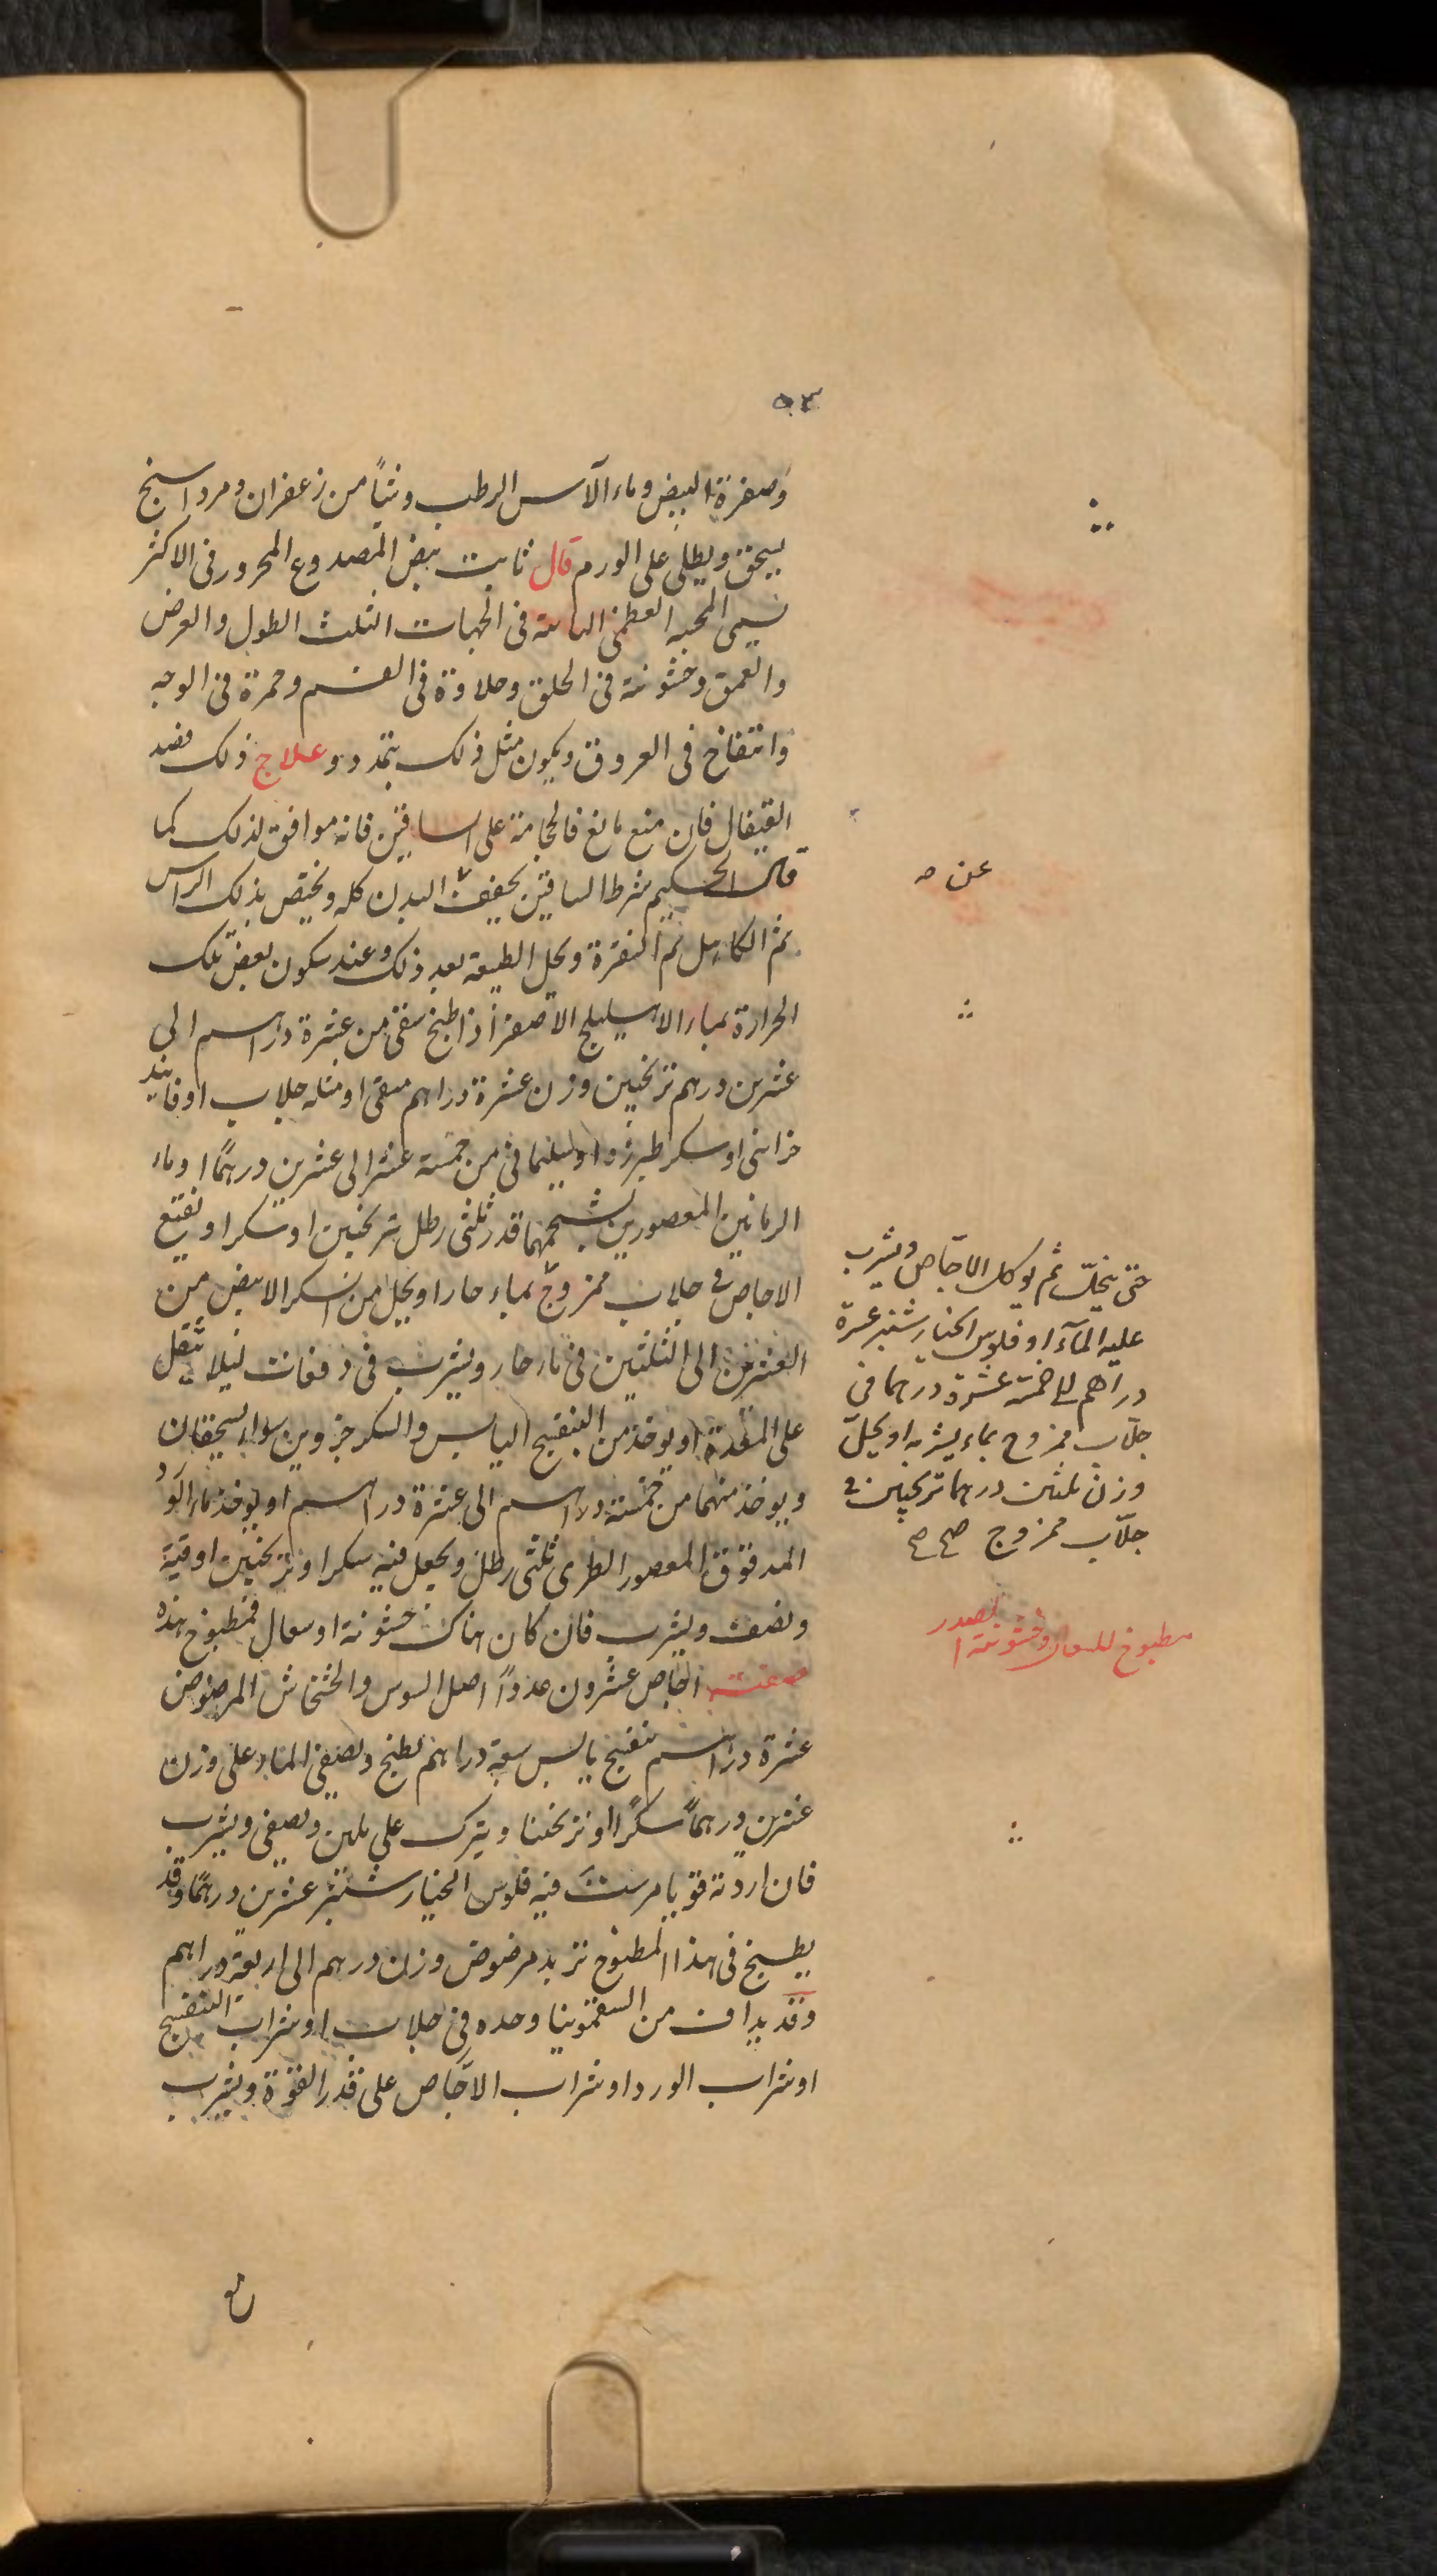 ٥٣
وصفرة البيض وماء الآس الرطب وشيأ من زعفران ومرداسنج
يسحق ويطلى على الورم قال ثابت نبض المصدوع المحرور فى الاكثر
العظمى فى الجهات الثلث الطول والعرض
والعمق وخشونة فى الحلق وحلاوة فى الفم وحمرة فى الوجه
وانتفاخ فى العروق ويكون مثل ذلك بتمدد وعلاج ذلك فصد
القيفال فان منع مانع فالحجامة على الساقين فانه موافق لذلك كما
قال الحكيم شرط الساقين يخفف البدن كله ويختص بذلك الراس
ثم الكاهل ثم النقرة ويحل الطبيعة بعد ذلك وعند سكون بعض تلك
الحرارة بماء الاهليلج الاصفر اذا طبخ منقى من عشرة دراهم الى
عشرين درهم ترنجبين وزن عشرة دراهم منقى او مثله جلاب او فانيد
خزائنى او سكر طبرزد او سليمانى من خمسة عشر الى عشرين درهمًا او ماء
الرمانين المعصورين بشحمهما قدر ثلثى رطل بترنجبين او سكر او نقيع
الاجاص فى جلاب ممزوج بماء حار او يحل من السكر الابيض من
العشرين الى الثلثين فى ماء حار ويشرب فى دفعات ليلا يثقل
على المعدة او يوخذ من البنفسج اليابس والسكر جزوين سواء يسحقان
ويوخذ منهما من خمسة دراهم الى عشرة دراهم او يوخذ ماء الورد
المدقوق المعصور الطرى ثلثى رطل ويجعل فيه سكر او ترنجبين اوقية
ونصف ويشرب فان كان هناك خشونة او سعال فمطبوخ هذه
صفته اجاص عشرون عددًا اصل السوس والخشخاش المرضوض
عشرة دراهم بنفسج يابس سبعة دراهم يطبخ ويصفى الماء على وزن
عشرين درهمًا سكرًا او ترنجبينا ويترك على يلين ويصفى ويشرب
فان اردته قويا مرست فيه فلوس الخيار شنبر عشرين درهمًا وقد
يطبخ فى هذا المطبوخ تربد مرضوض وزن درهم الى اربعة دراهم
وقد يداف من السقمونيا وحده فى جلاب او شراب البنفسج
او شراب الورد او شراب الاجاص على قدر القوة ويشرب
عن
حتى ينحلّ ثم يوكل الاجّاص ويشرب
عليه المآء او فلوس الخيار شنبر عشرة
دراهم الى خمسة عشرة درهما فى
جلّاب ممزوج بماء يشربه او يحلّ
وزن ثلثين درهما ترنجبين فى
جلّاب ممزوج صح صح
مطبوخ للسعال وخشونة الصدر